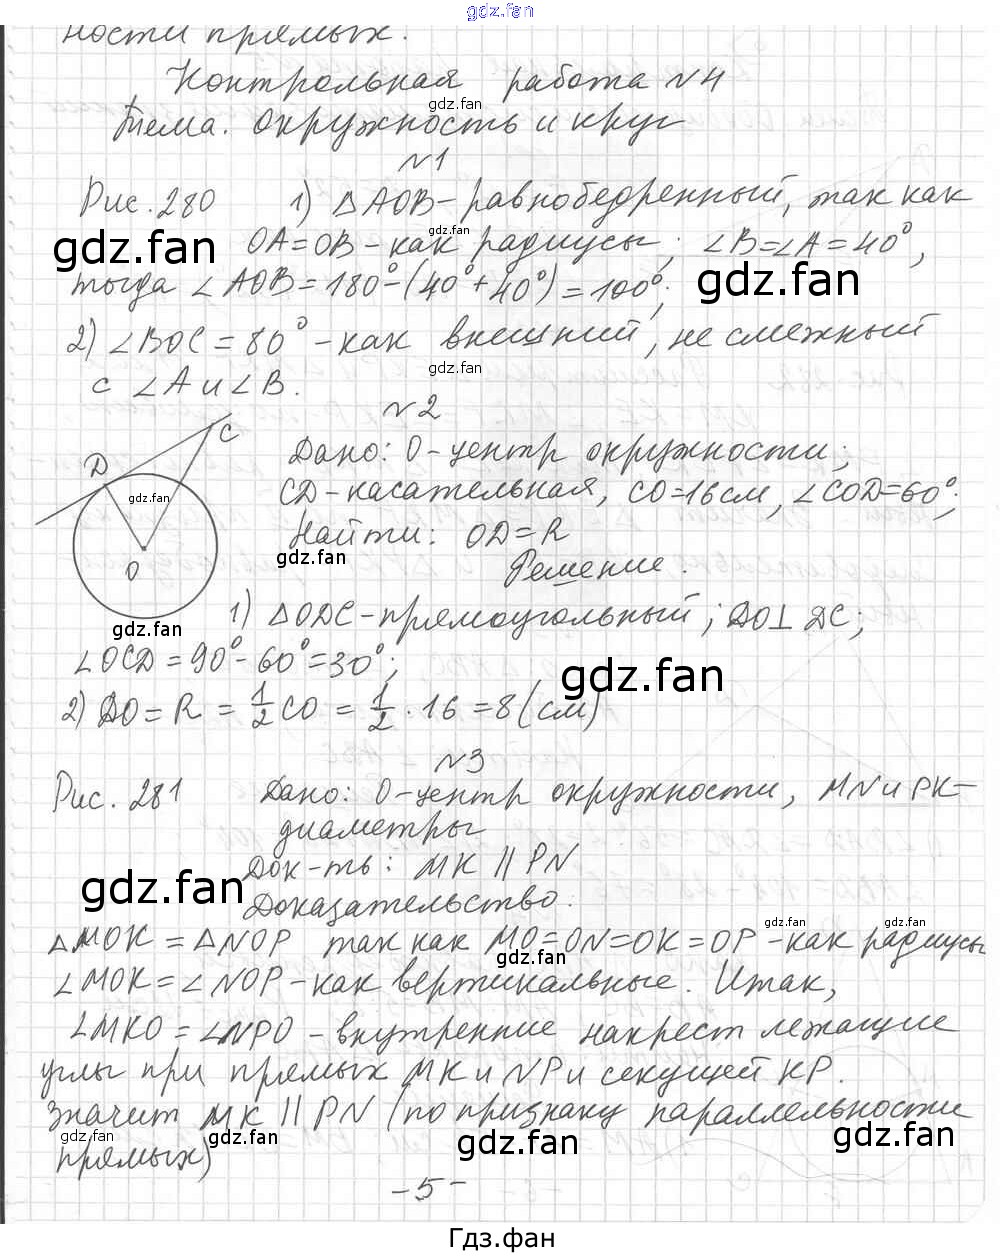 gdz.fan
ности прямых.
Контрольная работа №4
gdz.fan
Тема. Окружность и круг
№1
Рис. 280 1) △AOB - равнобедренный, так как
gdz.fan gdz.fan
OA = OB - как радиусы; ∠B = ∠A = 40°,
gdz.fan
тогда ∠AOB = 180° - (40° + 40°) = 100°;
2) ∠BOC = 80° - как внешний, не смежный
gdz.fan
с ∠A и ∠B.
№2
C
D
Дано: O - центр окружности;
gdz.fan
CD - касательная, CO = 16 см, ∠COD = 60°;
Найти: OD = R
gdz.fan
O
Решение.
1) △ODC - прямоугольный; DO ⊥ DC;
gdz.fan
∠OCD = 90° - 60° = 30°;
gdz.fan
2) DO = R = 1/2 CO = 1/2 · 16 = 8 (см)
№3
Рис. 281 Дано: O - центр окружности, MN и PK -
диаметры
Док-ть: MK || PN
gdz.fan
Доказательство:
gdz.fan gdz.fan
△MOK = △NOP так как MO = ON = OK = OP - как радиусы
gdz.fan
∠MOK = ∠NOP - как вертикальные. Итак,
∠MKO = ∠NPO - внутренние накрест лежащие
углы при прямых MK и NP и секущей KP.
Значит MK || PN (по признаку параллельности
gdz.fan gdz.fan gdz.fan gdz.fan
прямых)
- 5 -
Гдз.фан